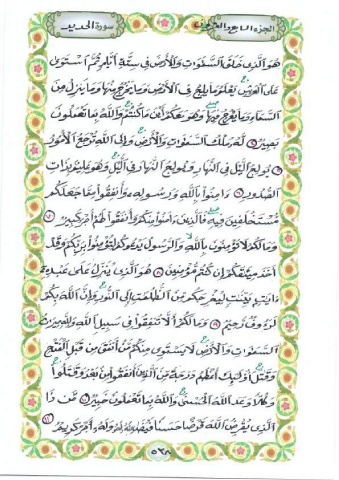 الجزء السابع والعشرون سورة الحديد
هُوَ الَّذِى خَلَقَ السَّمَٰوَٰتِ وَالْأَرْضَ فِى سِتَّةِ أَيَّامٍ ثُمَّ اسْتَوَىٰ
عَلَى الْعَرْشِ يَعْلَمُ مَا يَلِجُ فِى الْأَرْضِ وَمَا يَخْرُجُ مِنْهَا وَمَا يَنزِلُ مِنَ
السَّمَاءِ وَمَا يَعْرُجُ فِيهَا وَهُوَ مَعَكُمْ أَيْنَ مَا كُنتُمْ وَاللَّهُ بِمَا تَعْمَلُونَ
بَصِيرٌ ۝٤ لَهُ مُلْكُ السَّمَٰوَٰتِ وَالْأَرْضِ وَإِلَى اللَّهِ تُرْجَعُ الْأُمُورُ
۝٥ يُولِجُ الَّيْلَ فِى النَّهَارِ وَيُولِجُ النَّهَارَ فِى الَّيْلِ وَهُوَ عَلِيمٌ بِذَاتِ
الصُّدُورِ ۝٦ ءَامِنُوا بِاللَّهِ وَرَسُولِهِ وَأَنفِقُوا مِمَّا جَعَلَكُم
مُّسْتَخْلَفِينَ فِيهِ فَالَّذِينَ ءَامَنُوا مِنكُمْ وَأَنفَقُوا لَهُمْ أَجْرٌ كَبِيرٌ ۝٧
وَمَا لَكُمْ لَا تُؤْمِنُونَ بِاللَّهِ وَالرَّسُولُ يَدْعُوكُمْ لِتُؤْمِنُوا بِرَبِّكُمْ وَقَدْ
أَخَذَ مِيثَٰقَكُمْ إِن كُنتُم مُّؤْمِنِينَ ۝٨ هُوَ الَّذِى يُنَزِّلُ عَلَىٰ عَبْدِهِ
ءَايَٰتٍ بَيِّنَٰتٍ لِّيُخْرِجَكُم مِّنَ الظُّلُمَٰتِ إِلَى النُّورِ وَإِنَّ اللَّهَ بِكُمْ
لَرَءُوفٌ رَّحِيمٌ ۝٩ وَمَا لَكُمْ أَلَّا تُنفِقُوا فِى سَبِيلِ اللَّهِ وَلِلَّهِ مِيرَٰثُ
السَّمَٰوَٰتِ وَالْأَرْضِ لَا يَسْتَوِى مِنكُم مَّنْ أَنفَقَ مِن قَبْلِ الْفَتْحِ
وَقَٰتَلَ أُولَٰئِكَ أَعْظَمُ دَرَجَةً مِّنَ الَّذِينَ أَنفَقُوا مِن بَعْدُ وَقَٰتَلُوا
وَكُلًّا وَعَدَ اللَّهُ الْحُسْنَىٰ وَاللَّهُ بِمَا تَعْمَلُونَ خَبِيرٌ ۝١٠ مَّن ذَا
الَّذِى يُقْرِضُ اللَّهَ قَرْضًا حَسَنًا فَيُضَٰعِفَهُ لَهُ وَلَهُ أَجْرٌ كَرِيمٌ ۝١١
٥٣٨